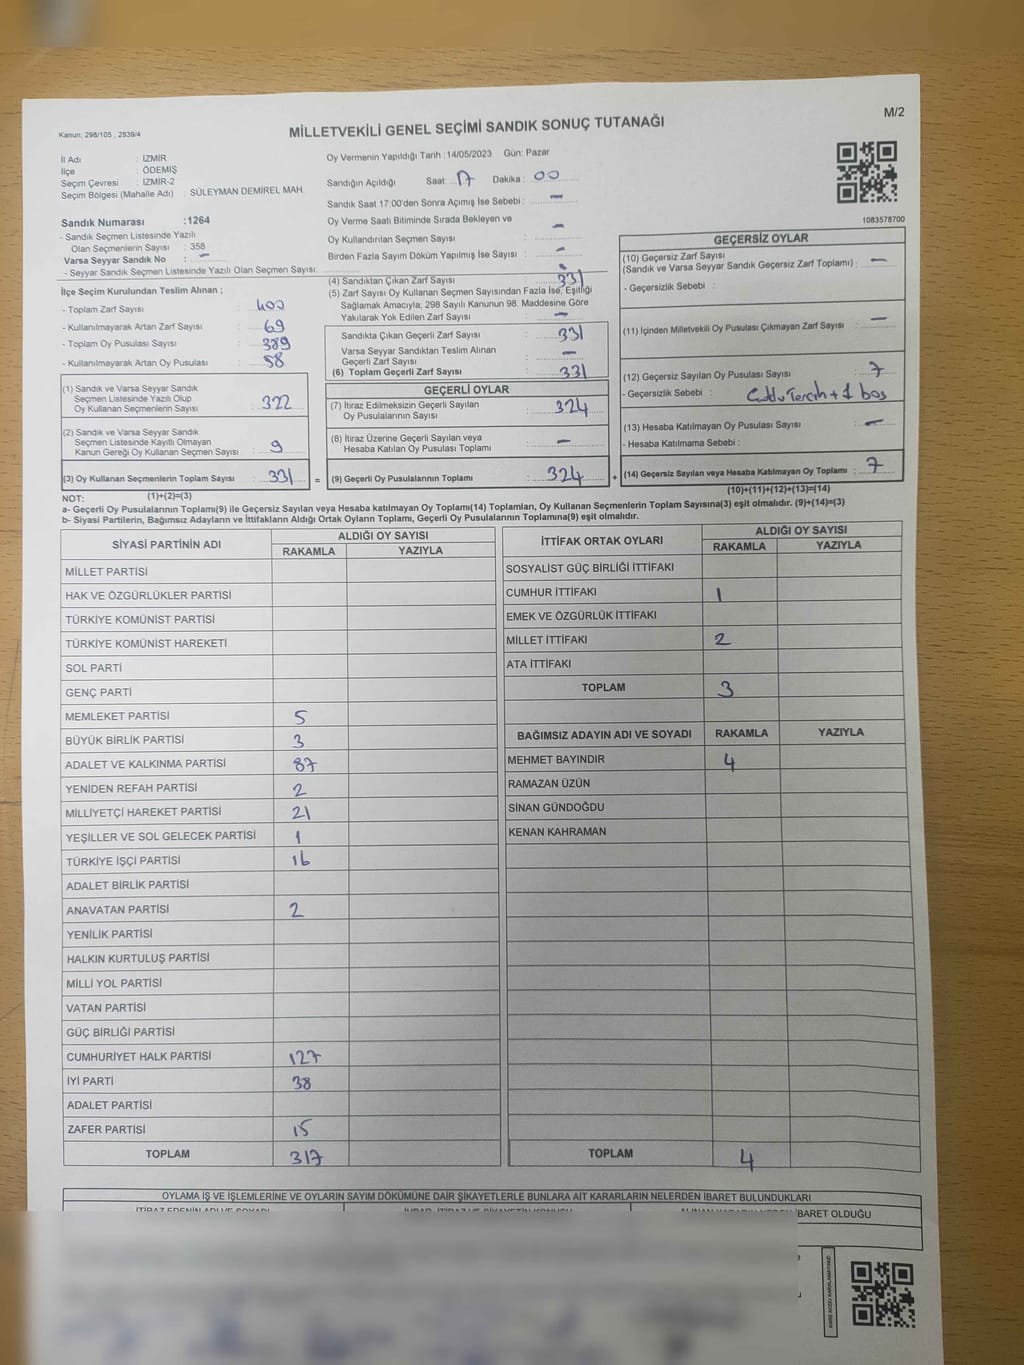 M/2
Kanun: 298/105 , 2839/4
MİLLETVEKİLİ GENEL SEÇİMİ SANDIK SONUÇ TUTANAĞI
İl Adı : İZMİR
İlçe : ÖDEMİŞ
Seçim Çevresi : İZMİR-2
Seçim Bölgesi (Mahalle Adı) : SÜLEYMAN DEMİREL MAH.
Sandık Numarası : 1264
- Sandık Seçmen Listesinde Yazılı
Olan Seçmenlerin Sayısı : 358
Varsa Seyyar Sandık No : —
- Seyyar Sandık Seçmen Listesinde Yazılı Olan Seçmen Sayısı:
İlçe Seçim Kurulundan Teslim Alınan ;
- Toplam Zarf Sayısı : 400
- Kullanılmayarak Artan Zarf Sayısı : 69
- Toplam Oy Pusulası Sayısı : 389
- Kullanılmayarak Artan Oy Pusulası : 58
(1) Sandık ve Varsa Seyyar Sandık
Seçmen Listesinde Yazılı Olup
Oy Kullanan Seçmenlerin Sayısı : 322
(2) Sandık ve Varsa Seyyar Sandık
Seçmen Listesinde Kayıtlı Olmayan
Kanun Gereği Oy Kullanan Seçmen Sayısı : 9
(3) Oy Kullanan Seçmenlerin Toplam Sayısı : 331 =
Oy Vermenin Yapıldığı Tarih : 14/05/2023 Gün: Pazar
Sandığın Açıldığı Saat: 17 Dakika : 00
Sandık Saat 17:00'den Sonra Açımış İse Sebebi : —
Oy Verme Saati Bitiminde Sırada Bekleyen ve
Oy Kullandırılan Seçmen Sayısı : —
Birden Fazla Sayım Döküm Yapılmış İse Sayısı : —
(4) Sandıktan Çıkan Zarf Sayısı : 331
(5) Zarf Sayısı Oy Kullanan Seçmen Sayısından Fazla İse, Eşitliği
Sağlamak Amacıyla; 298 Sayılı Kanunun 98. Maddesine Göre
Yakılarak Yok Edilen Zarf Sayısı : —
Sandıkta Çıkan Geçerli Zarf Sayısı : 331
Varsa Seyyar Sandıktan Teslim Alınan
Geçerli Zarf Sayısı : —
(6) Toplam Geçerli Zarf Sayısı : 331
GEÇERLİ OYLAR
(7) İtiraz Edilmeksizin Geçerli Sayılan
Oy Pusulalarının Sayısı : 324
(8) İtiraz Üzerine Geçerli Sayılan veya
Hesaba Katılan Oy Pusulası Toplamı : —
(9) Geçerli Oy Pusulalarının Toplamı : 324 +
1083578700
GEÇERSİZ OYLAR
(10) Geçersiz Zarf Sayısı
(Sandık ve Varsa Seyyar Sandık Geçersiz Zarf Toplamı) : —
- Geçersizlik Sebebi :
(11) İçinden Milletvekili Oy Pusulası Çıkmayan Zarf Sayısı : —
(12) Geçersiz Sayılan Oy Pusulası Sayısı : 7
- Geçersizlik Sebebi : Çoklu Tercih + 1 boş
(13) Hesaba Katılmayan Oy Pusulası Sayısı : —
- Hesaba Katılmama Sebebi :
(14) Geçersiz Sayılan veya Hesaba Katılmayan Oy Toplamı : 7
NOT: (1)+(2)=(3)
(10)+(11)+(12)+(13)=(14)
a- Geçerli Oy Pusulalarının Toplamı(9) ile Geçersiz Sayılan veya Hesaba katılmayan Oy Toplamı(14) Toplamları, Oy Kullanan Seçmenlerin Toplam Sayısına(3) eşit olmalıdır. (9)+(14)=(3)
b- Siyasi Partilerin, Bağımsız Adayların ve İttifakların Aldığı Ortak Oyların Toplamı, Geçerli Oy Pusulalarının Toplamına(9) eşit olmalıdır.
SİYASİ PARTİNİN ADI ALDIĞI OY SAYISI
RAKAMLA YAZIYLA
MİLLET PARTİSİ
HAK VE ÖZGÜRLÜKLER PARTİSİ
TÜRKİYE KOMÜNİST PARTİSİ
TÜRKİYE KOMÜNİST HAREKETİ
SOL PARTİ
GENÇ PARTİ
MEMLEKET PARTİSİ 5
BÜYÜK BİRLİK PARTİSİ 3
ADALET VE KALKINMA PARTİSİ 87
YENİDEN REFAH PARTİSİ 2
MİLLİYETÇİ HAREKET PARTİSİ 21
YEŞİLLER VE SOL GELECEK PARTİSİ 1
TÜRKİYE İŞÇİ PARTİSİ 16
ADALET BİRLİK PARTİSİ
ANAVATAN PARTİSİ 2
YENİLİK PARTİSİ
HALKIN KURTULUŞ PARTİSİ
MİLLİ YOL PARTİSİ
VATAN PARTİSİ
GÜÇ BİRLİĞİ PARTİSİ
CUMHURİYET HALK PARTİSİ 127
İYİ PARTİ 38
ADALET PARTİSİ
ZAFER PARTİSİ 15
TOPLAM 317
İTTİFAK ORTAK OYLARI ALDIĞI OY SAYISI
RAKAMLA YAZIYLA
SOSYALİST GÜÇ BİRLİĞİ İTTİFAKI
CUMHUR İTTİFAKI 1
EMEK VE ÖZGÜRLÜK İTTİFAKI
MİLLET İTTİFAKI 2
ATA İTTİFAKI
TOPLAM 3
BAĞIMSIZ ADAYIN ADI VE SOYADI RAKAMLA YAZIYLA
MEHMET BAYINDIR 4
RAMAZAN ÜZÜN
SİNAN GÜNDOĞDU
KENAN KAHRAMAN
TOPLAM 4
OYLAMA İŞ VE İŞLEMLERİNE VE OYLARIN SAYIM DÖKÜMÜNE DAİR ŞİKAYETLERLE BUNLARA AİT KARARLARIN NELERDEN İBARET BULUNDUKLARI
BARET OLDUĞU